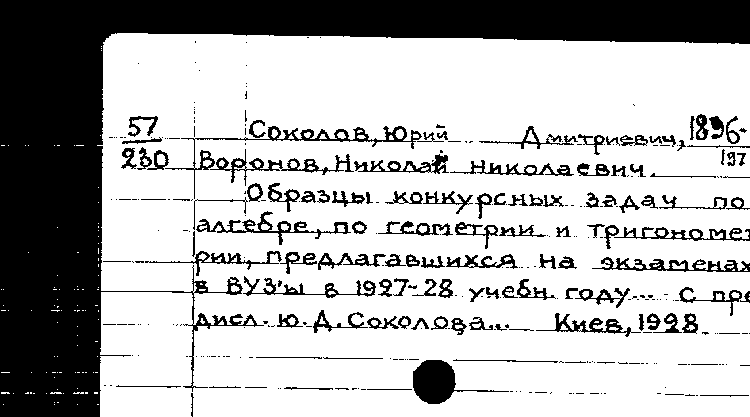 57 Соколов, Юрий Дмитриевич, 1896-
197
230 Воронов, Николай Николаевич.
Образцы конкурсных задач по
алгебре, по геометрии и тригономет
рии, предлагавшихся на экзаменах
в ВУЗ'ы в 1927-28 учебн. году... С пре
дисл. Ю. Д. Соколова... Киев, 1928